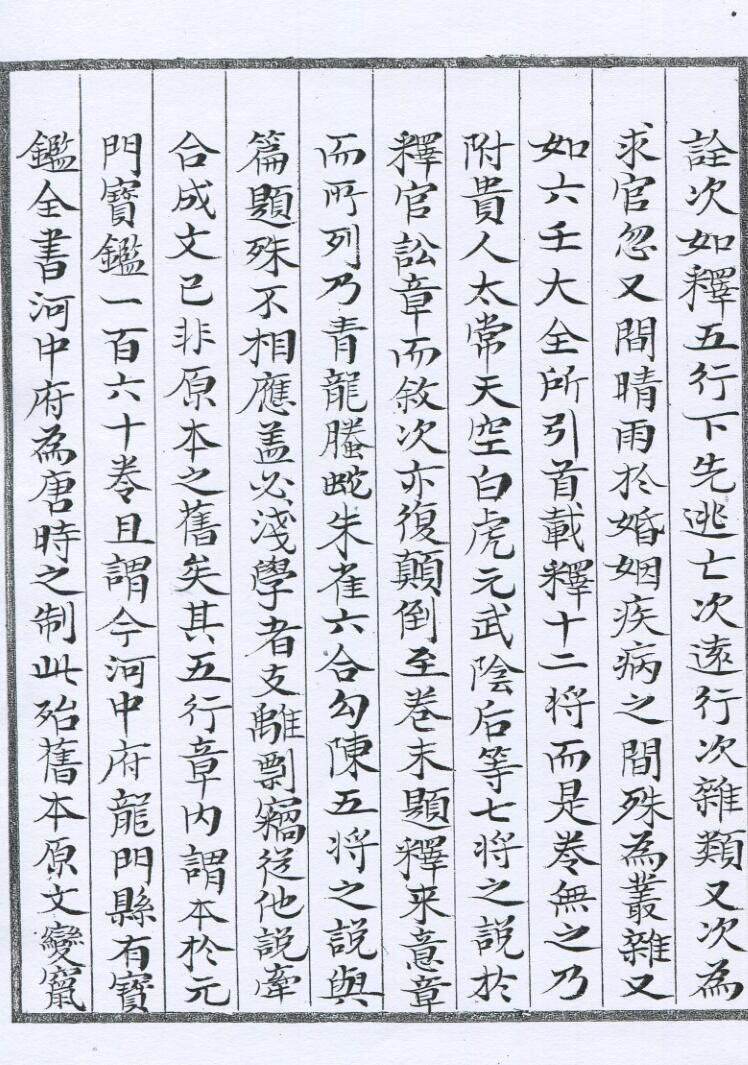 詮次如釋五行下先逃亡次遠行次雜類又次為
求官忽又間晴雨於婚姻疾病之間殊為叢雜又
如六壬大全所引首載釋十二將而是卷無之乃
附貴人太常天空白虎元武陰后等七將之說於
釋官訟章而敘次亦復顛倒至卷末題釋來意章
而所列乃青龍螣蛇朱雀六合勾陳五將之說與
篇題殊不相應蓋必淺學者支離剽竊從他說牽
合成文已非原本之舊矣其五行章内謂本於元
門寶鑑一百六十卷且謂今河中府龍門縣有寶
鑑全書河中府為唐時之制此殆舊本原文變竄